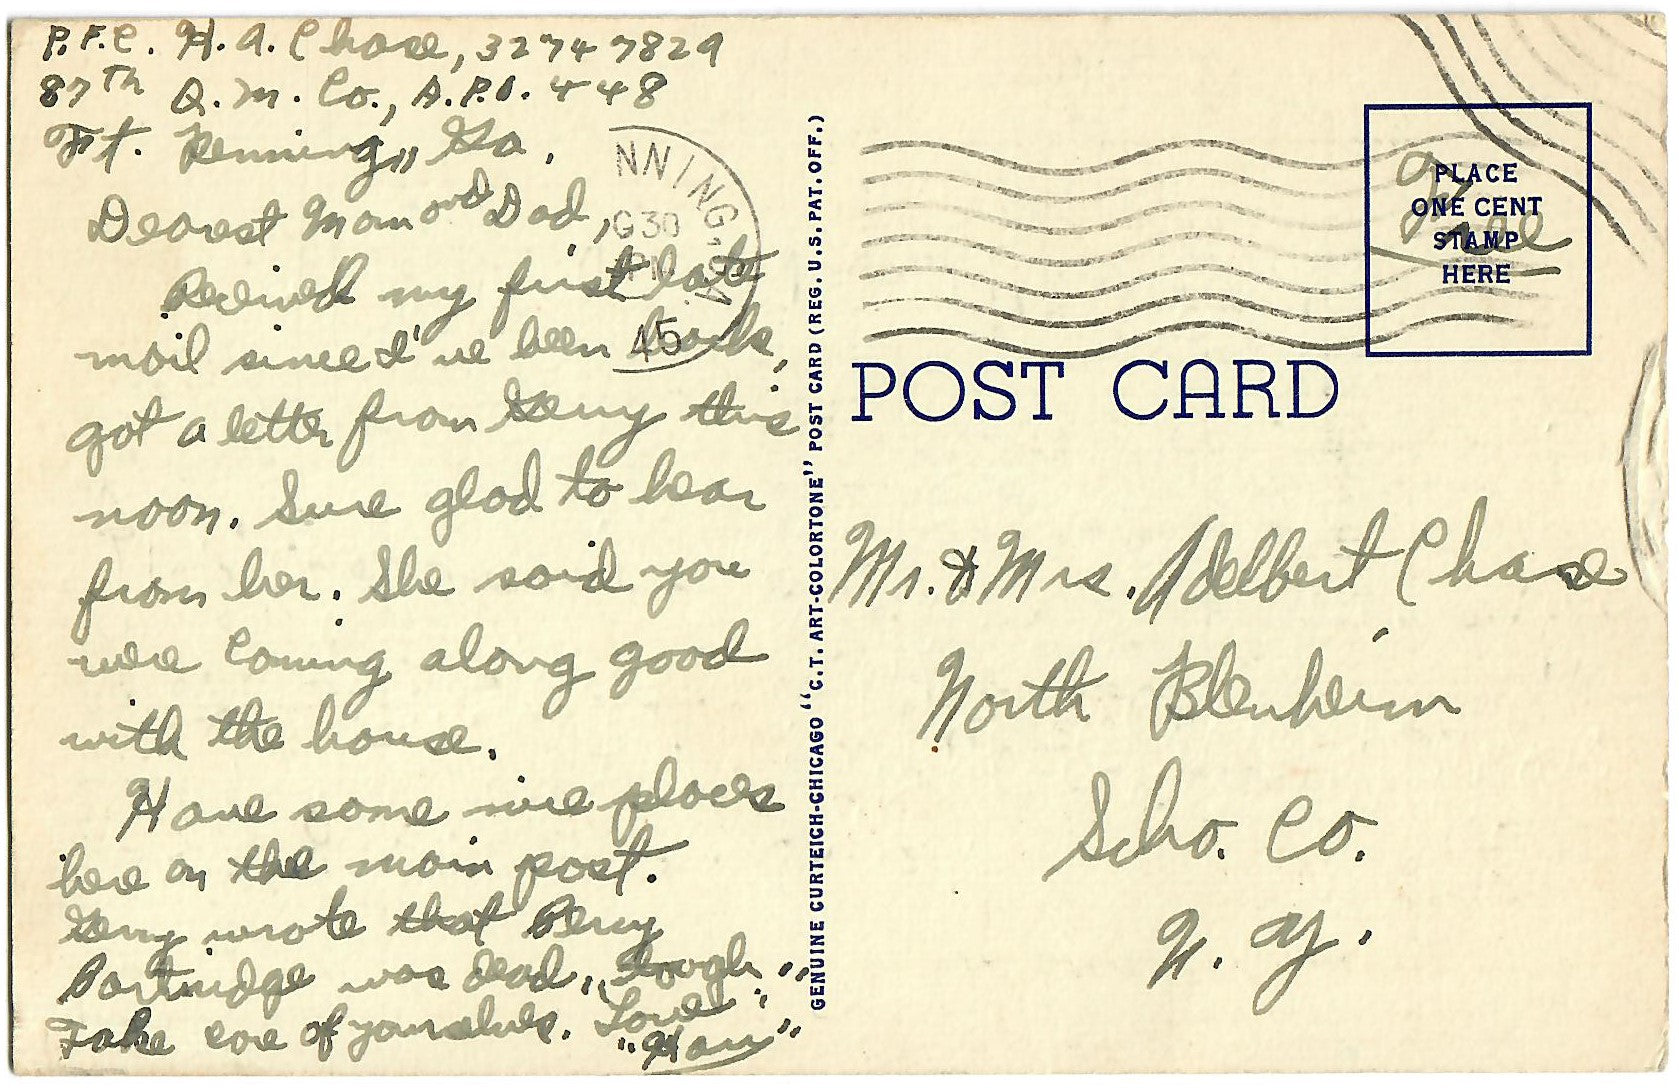 P.F.C. H. A. Chase, 32747829
87th Q. M. Co., A.P.O. 448
Ft. Benning, Ga.
Dearest Mom and Dad,
Received my first late
mail since I've been back,
got a letter from Gerry this
noon. Sure glad to hear
from her. She said you
were coming along good
with the house.
Have some nice places
here on the main post.
Gerry wrote that Perry
Partridge was dead, "tough".
Take care of yourselves. Love,
"Harv"
NNING, GA
G 30
PM
45
GENUINE CURTEICH-CHICAGO "C.T. ART-COLORTONE" POST CARD (REG. U.S. PAT. OFF.)
Free
PLACE
ONE CENT
STAMP
HERE
POST CARD
Mr. & Mrs. Adelbert Chase
North Blenheim
Scho. Co.
N. Y.